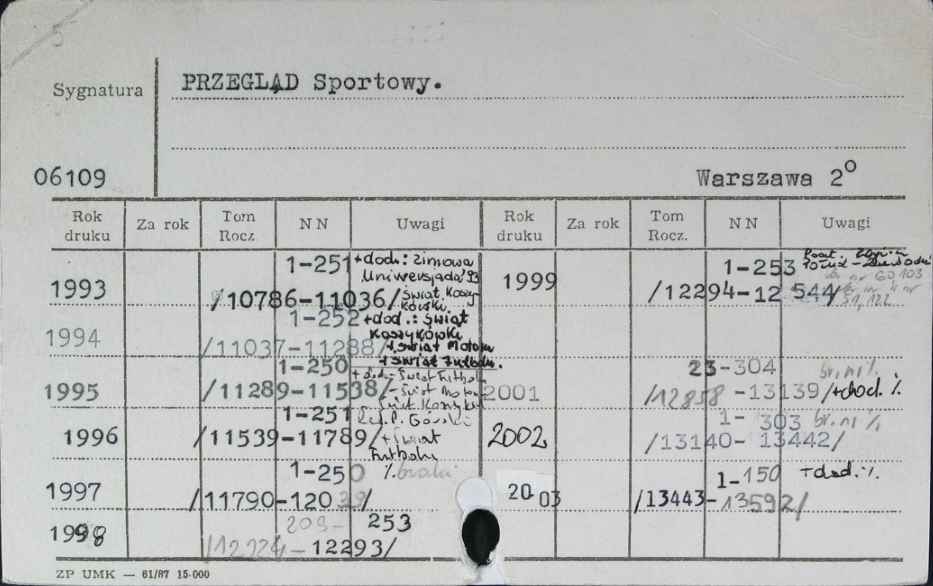 PRZEGLĄD Sportowy.
Sygnatura
06109
Warszawa 2°
Rok druku Za rok Tom Rocz NN Uwagi Rok druku Za rok Tom Rocz. NN Uwagi
1-251 +dod.: Zimowa
Uniwersjada'93
1993 /10786-11036/ świat Koszykówki
1-253
1999 /12294-12 544/
1-252 +dod.: Świat
Koszykówki
1994 /11037-11288/ + Świat Motoru
+ Świat Futbolu.
1-250
1995 /11289-11538/
23-304 br.nr %
2001 /12858 -13139/ +dod. %
1-251
1996 /11539-11789/ + Świat
Futbolu
1- 303 br.nr %
2002 /13140- 13442/
1-250 % braki
1997 /11790-12039/
1-150 +dod. %
2003 /13443-13592/
209- 253
1998 /12224-12293/
ZP UMK — 61/87 15·000